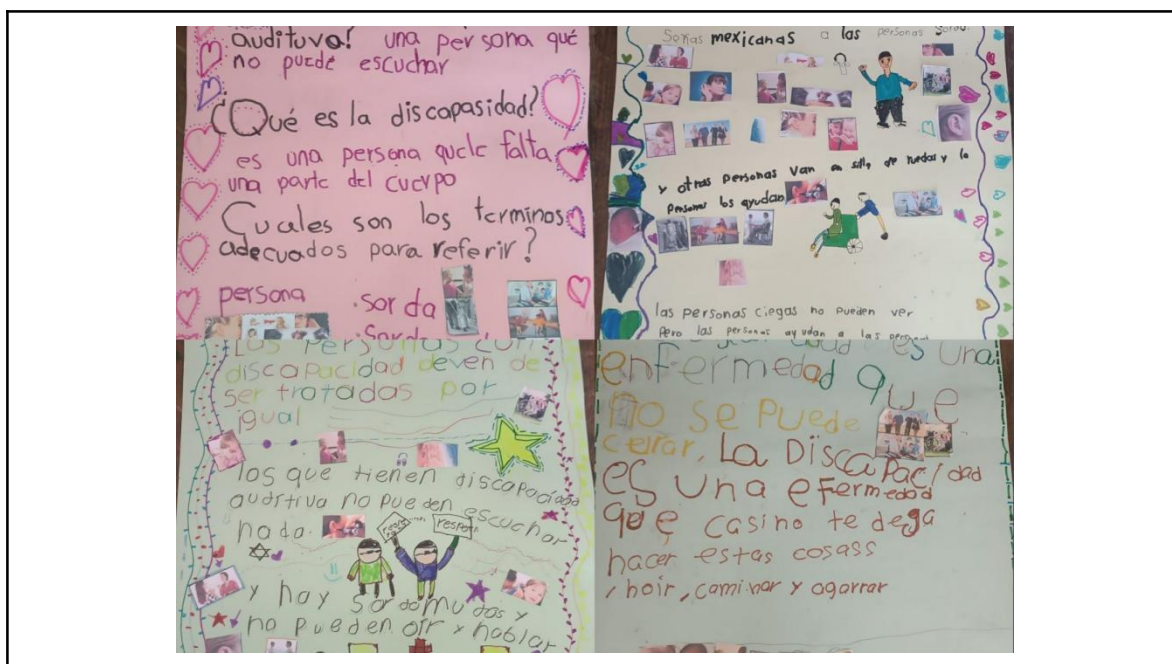 audituva! una persona qué
no puede escuchar
¿Qué es la discapasidad?
es una persona quele falta
una parte del cuerpo
Cuales son los terminos
adecuados para referir?
persona
.sorda
.Sorda
Señas mexicanas a las personas
y otras personas van en silla de ruedas y la
personas los ayudan
las personas ciegas no pueden ver
Pero las personas ayudan a las
Las personas con
discapacidad deven de
ser tratadas por
igual
los que tienen discapacidad
auditiva no pueden escuchar
nada.
y hay sordomudos y
no pueden oir y hablar
es una
enfermedad que
no se puede
cerrar, La Discapacidad
es una efermedad
que casino te dega
hacer estas cosass
hoir, caminar y agarrar